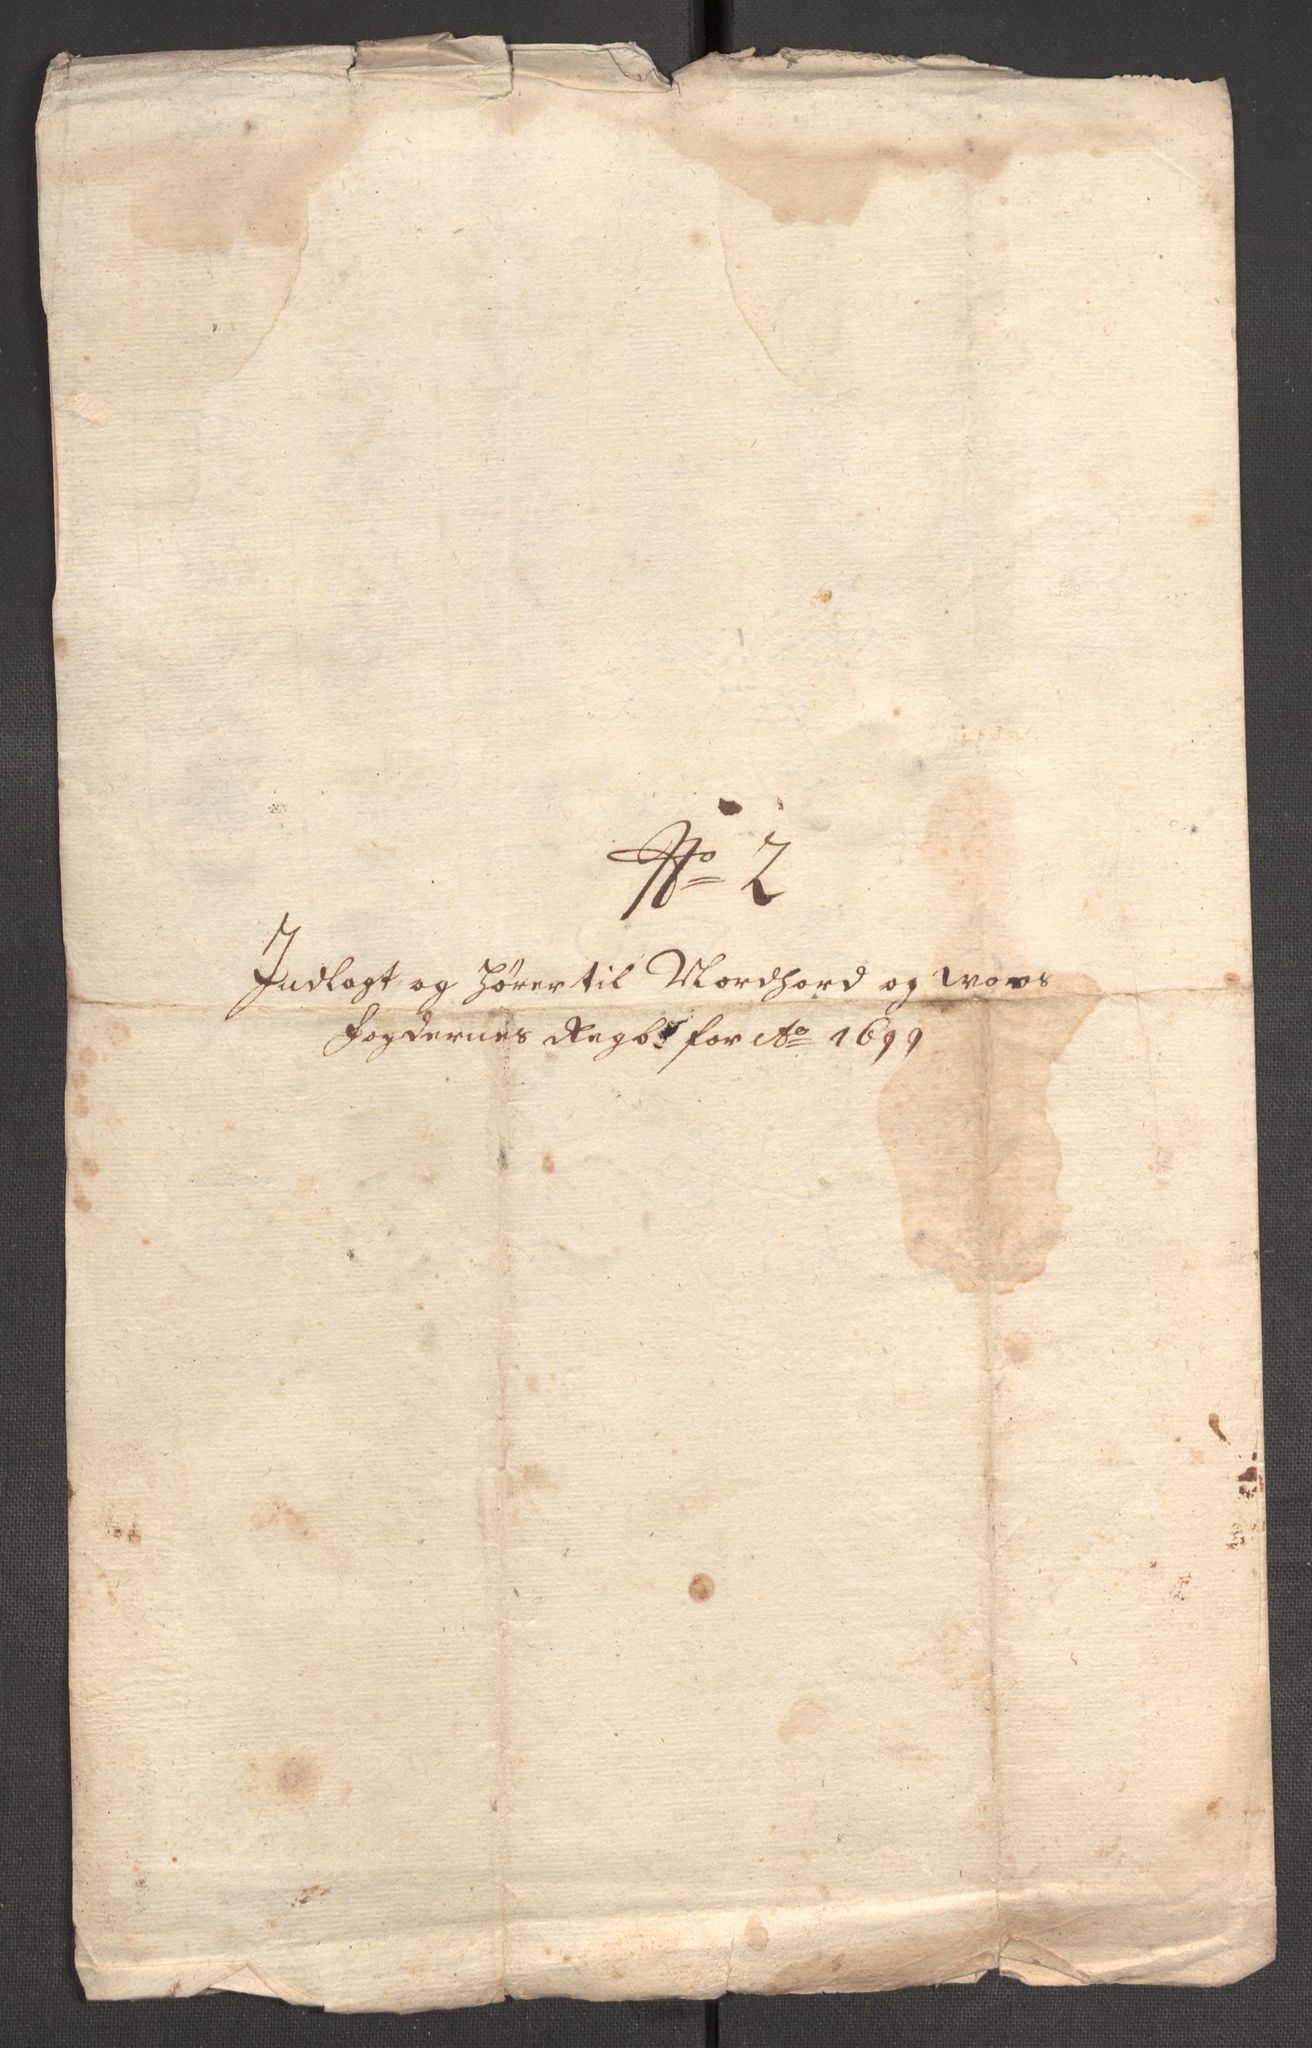 No 2
Indlagt og hører til Nordhord og wors
fogdernes Regb: for Ao 1699